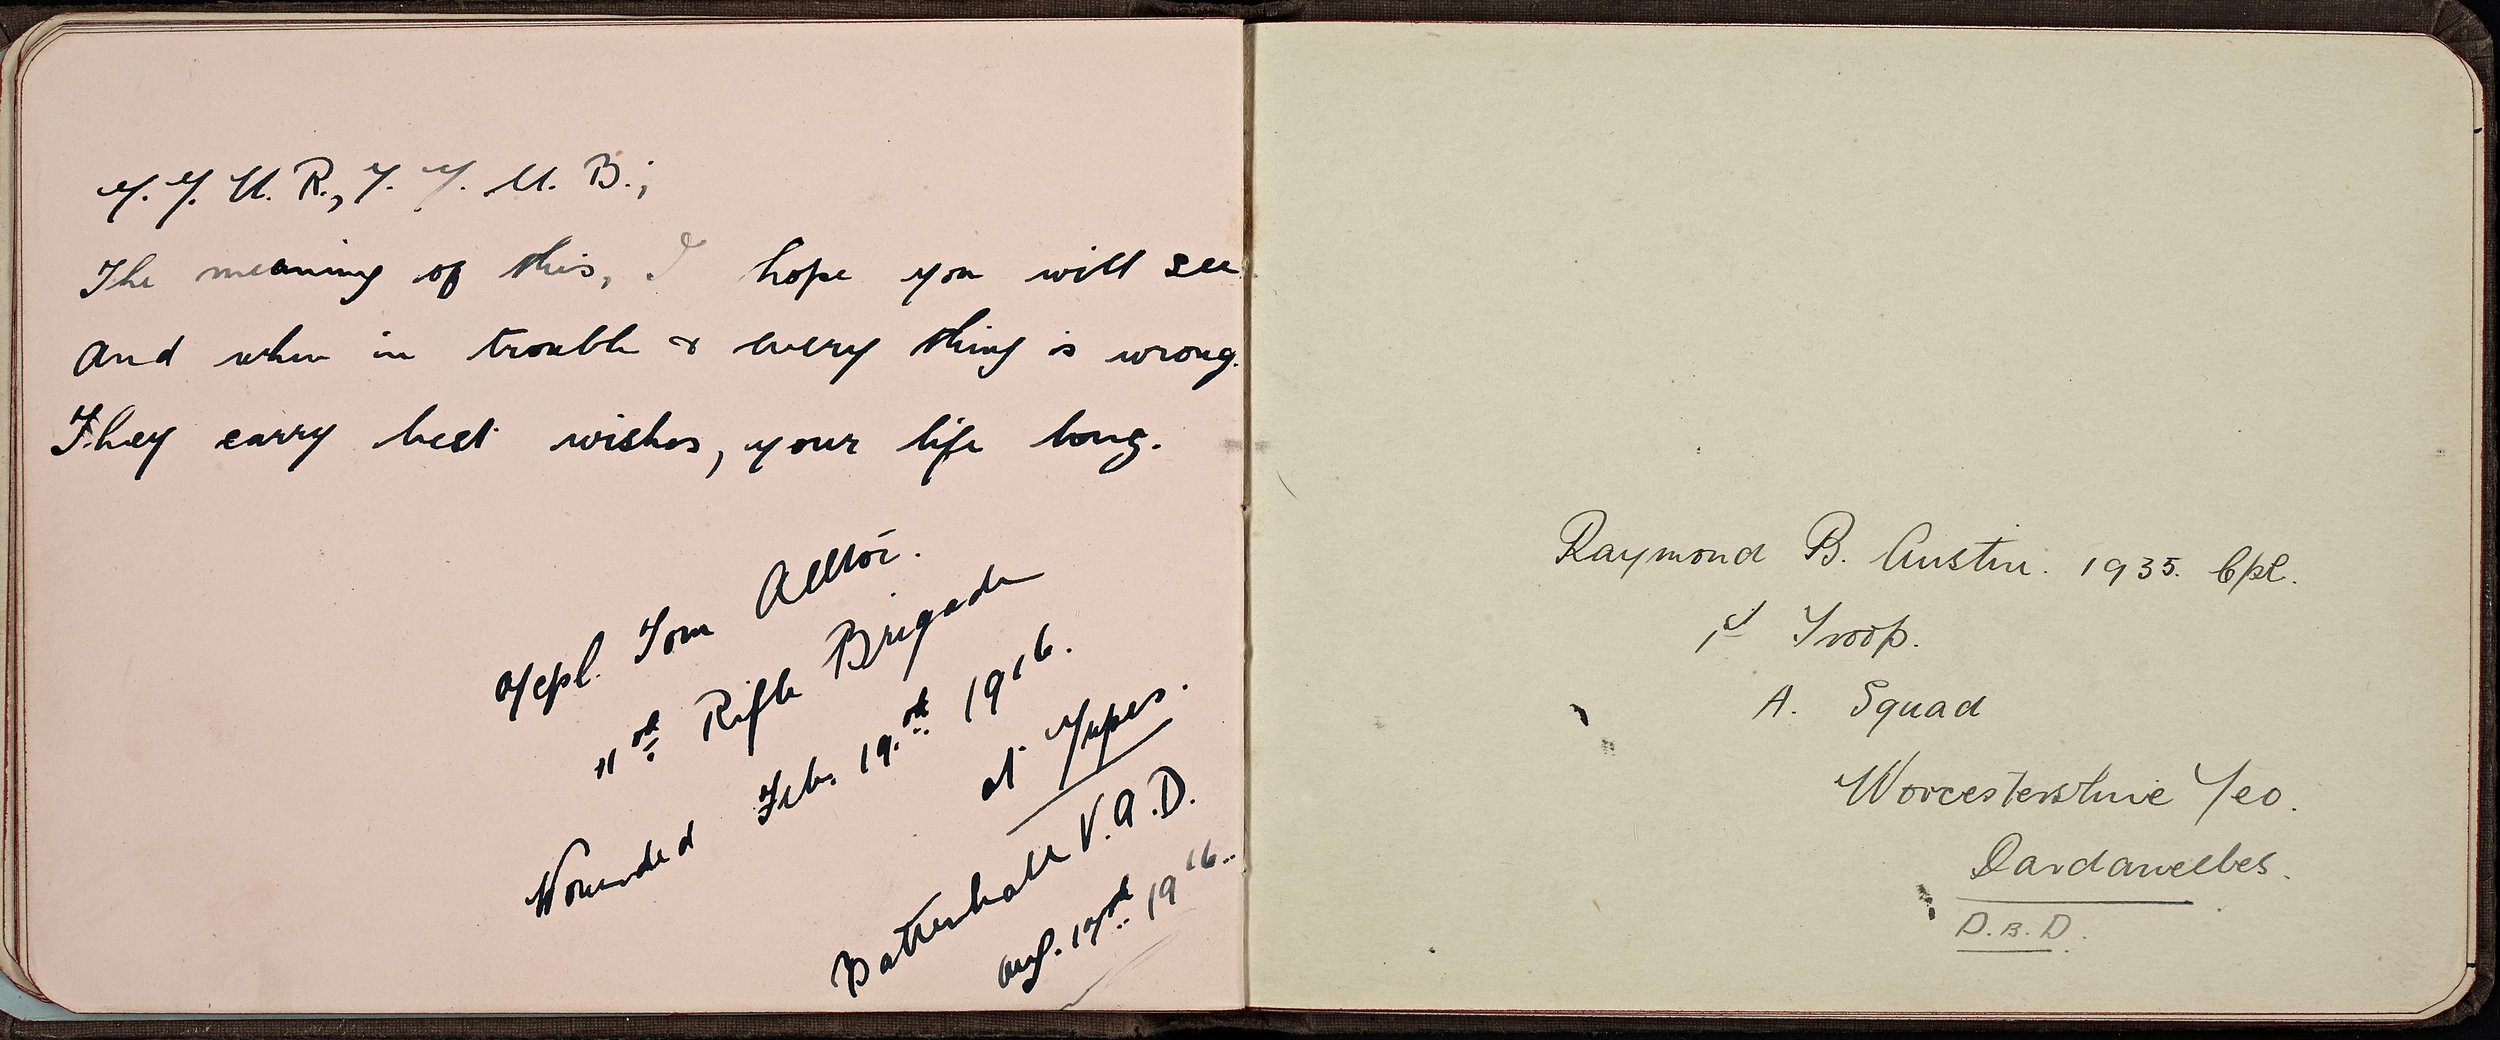 Y. Y. U. R., Y. Y. U. B.;
The meaning of this, I hope you will see
And when in trouble & every thing is wrong.
They carry best wishes, your life long.
A/cpl. Tom
11th Rifle Brigade
Wounded Feb. 19.th 1916.
at Ypres.
Battenhall V.A.D.
Aug. 17th 1916.
Raymond B. Austin. 1935. Cpl.
1st Troop.
A. Squad
Worcestershire Yeo.
Dardanelles.
D.B.D.